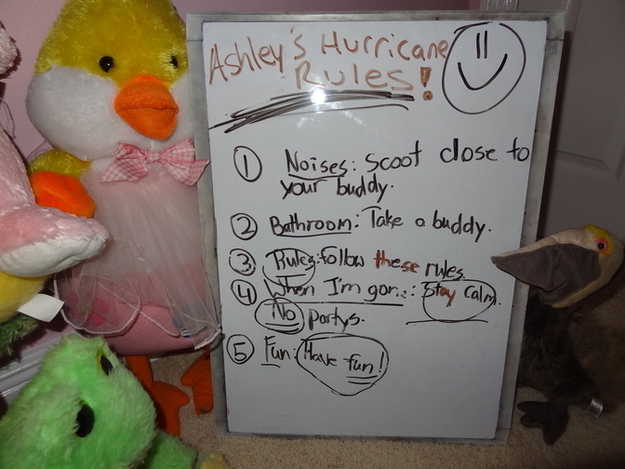 Ashley's Hurricane
Rules!
1 Noises: Scoot close to
your buddy.
2 Bathroom: Take a buddy.
3 Rules: follow these rules.
4 When I'm gon..: Stay Calm.
No partys.
5 Fun: Have fun!